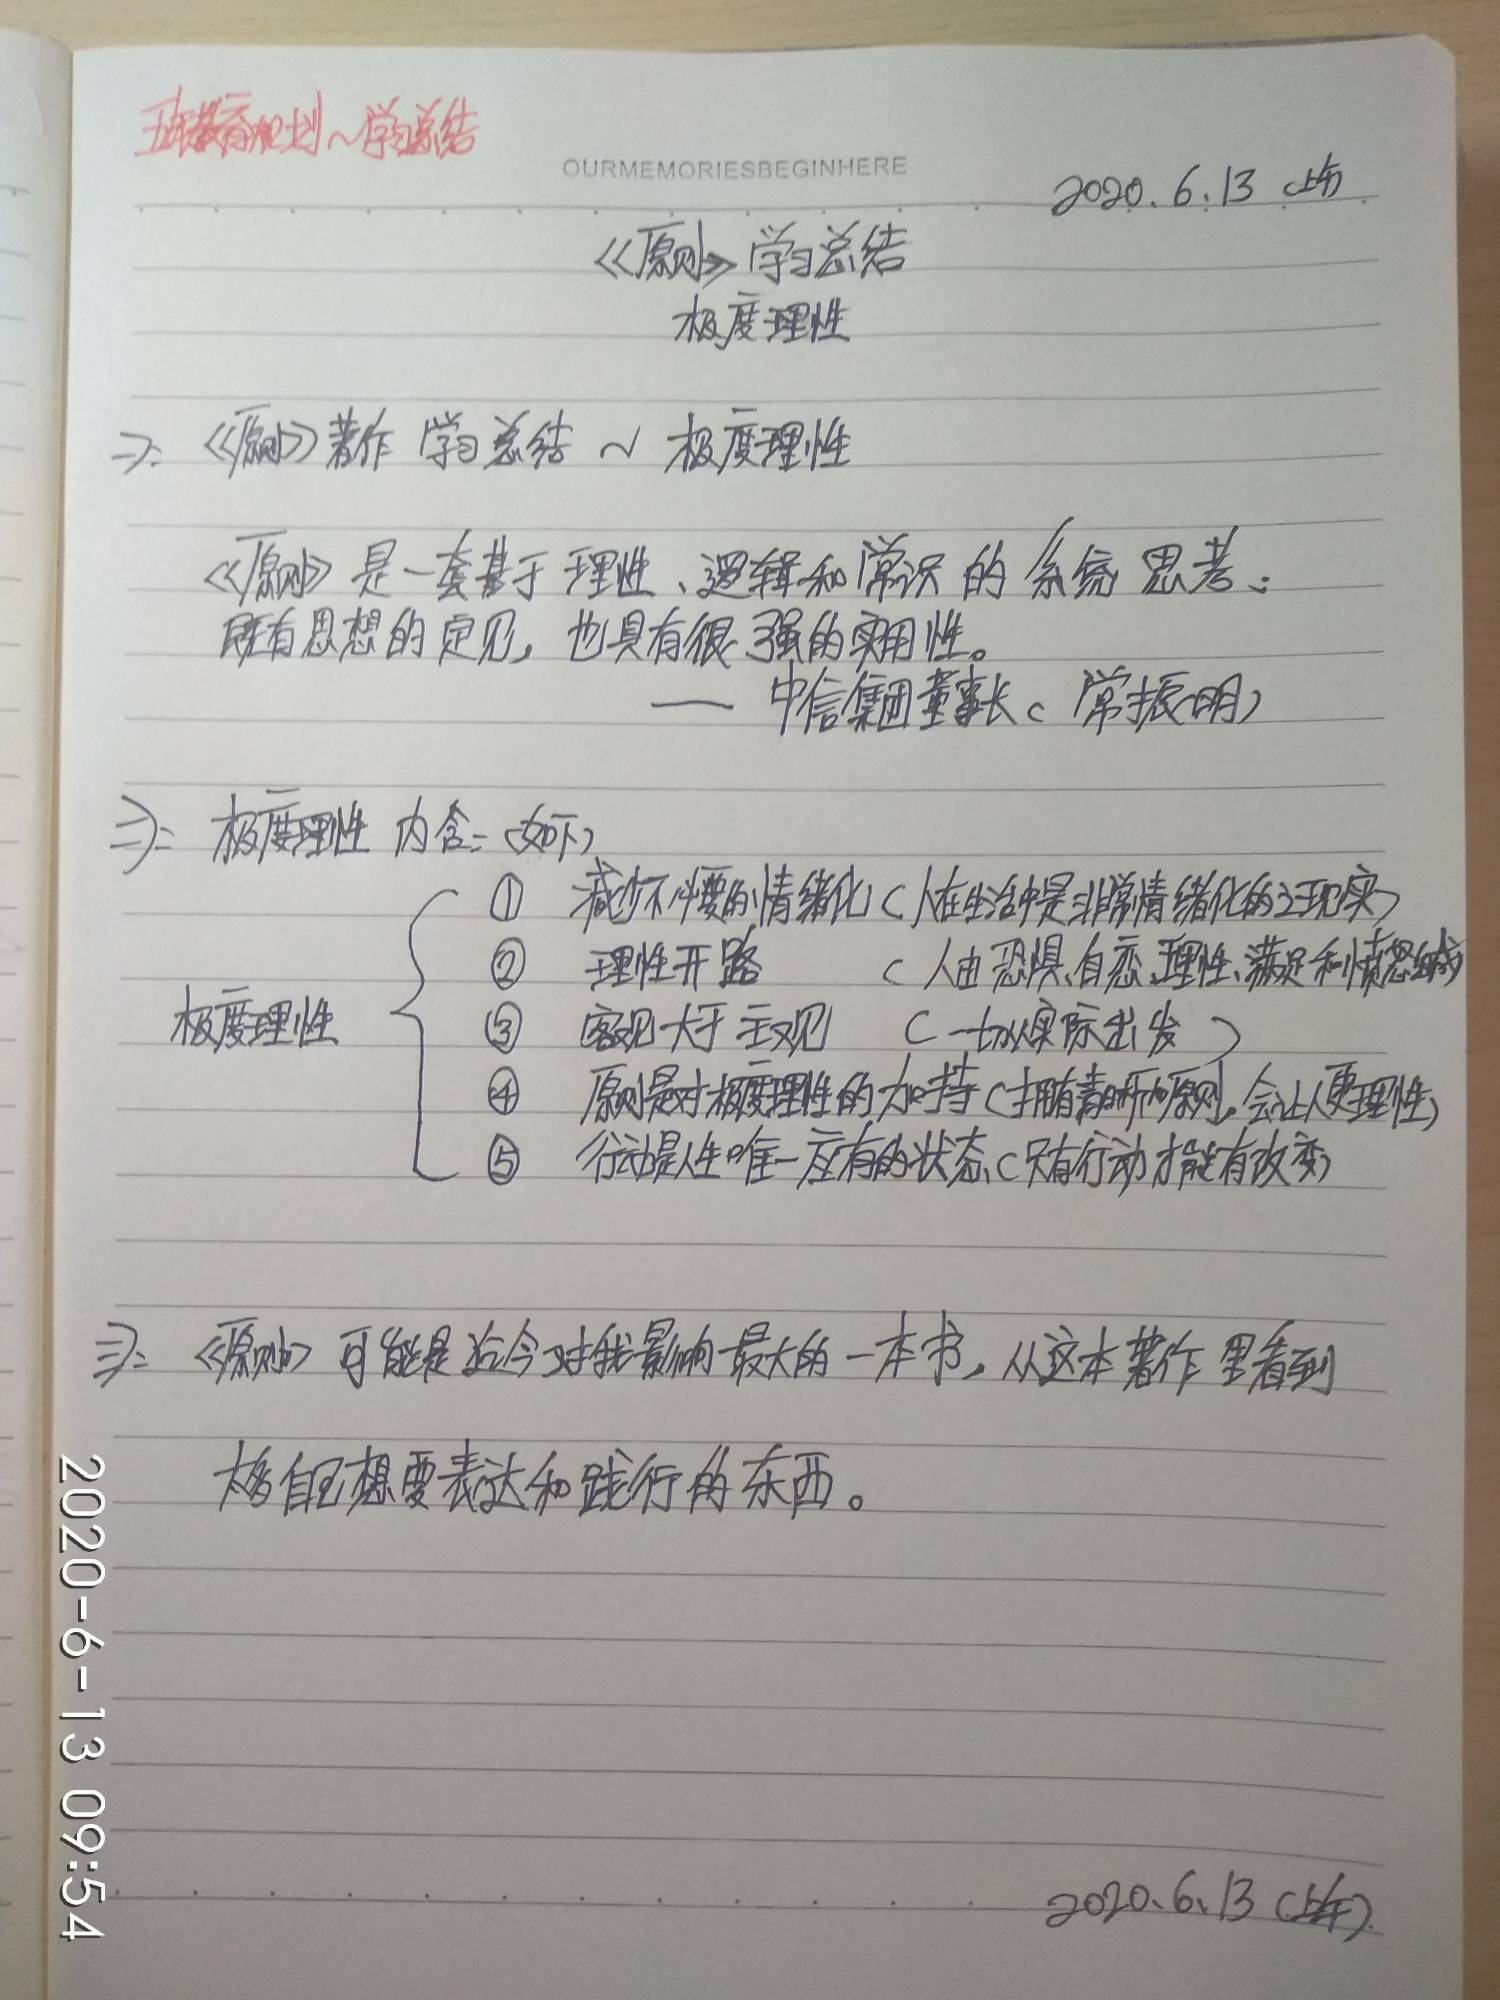 五年教育规划~学习总结
OURMEMORIESBEGINHERE
2020.6.13 (上午)
《原则》学习总结
极度理性
一): 《原则》著作 学习总结 ~ 极度理性
《原则》是一套基于理性、逻辑和常识的系统思考;
既有思想的定见,也具有很强的实用性。
—— 中信集团董事长(常振明)
二): 极度理性 内含:(如下)
① 减少不必要的情绪化(人在生活中是非常情绪化的主现实)
② 理性开路 (人由恐惧、自恋、理性、满足和愤怒组成)
极度理性
③ 客观大于主观 (一切从实际出发)
④ 原则是对极度理性的加持(拥有清晰的原则,会让人更理性)
⑤ 行动是人生唯一应有的状态(只有行动才能有改变)
三): 《原则》可能是迄今对我影响最大的一本书,从这本著作里看到
太多自己想要表达和践行的东西。
2020.6.13 (上午)
2020-6-13 09:54